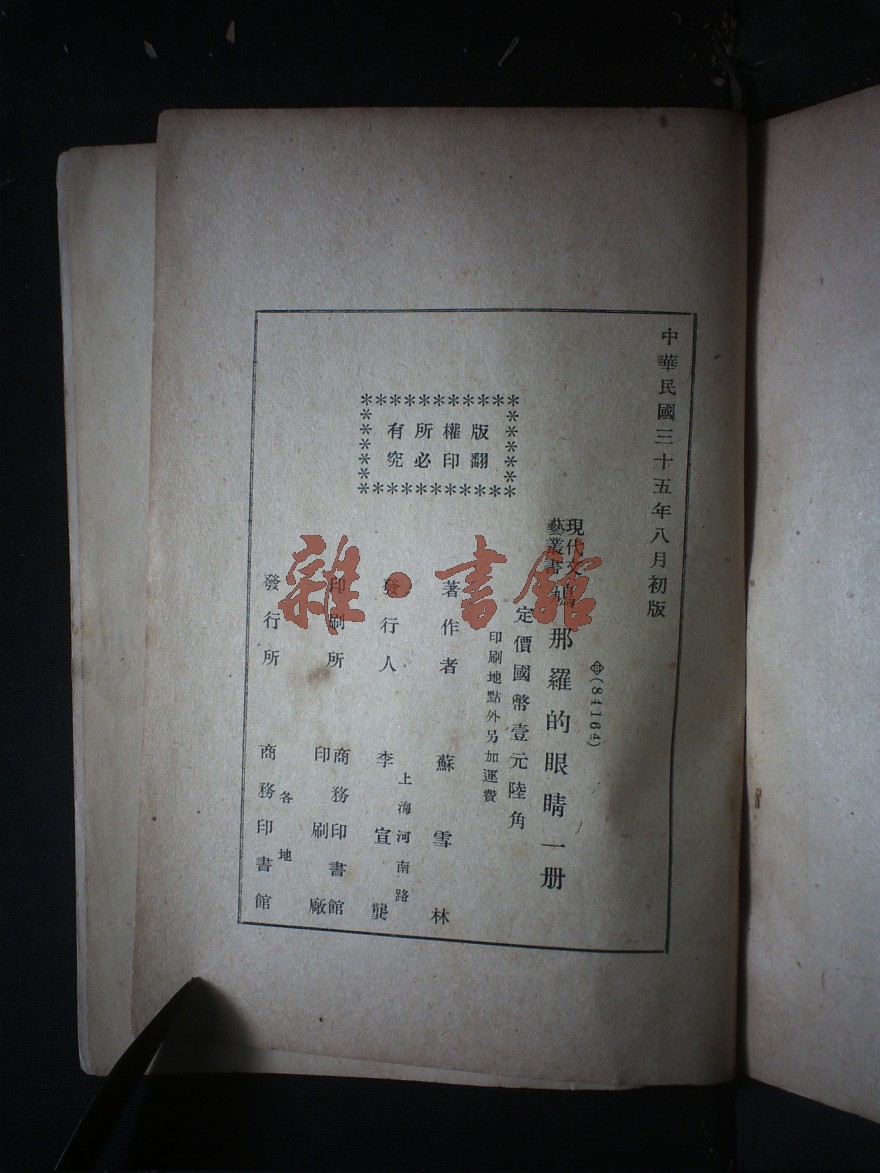 中華民國三十五年八月初版
㊥(84164)
現代文
藝叢書
鳩那羅的眼睛一册
定價國幣壹元陸角
印刷地點外另加運費
版權所有
翻印必究
著作者 蘇雪林
發行人 李宣龔
上海河南路
印刷所 商務印書館
印刷廠
發行所 商務印書館
各地
雜·書館